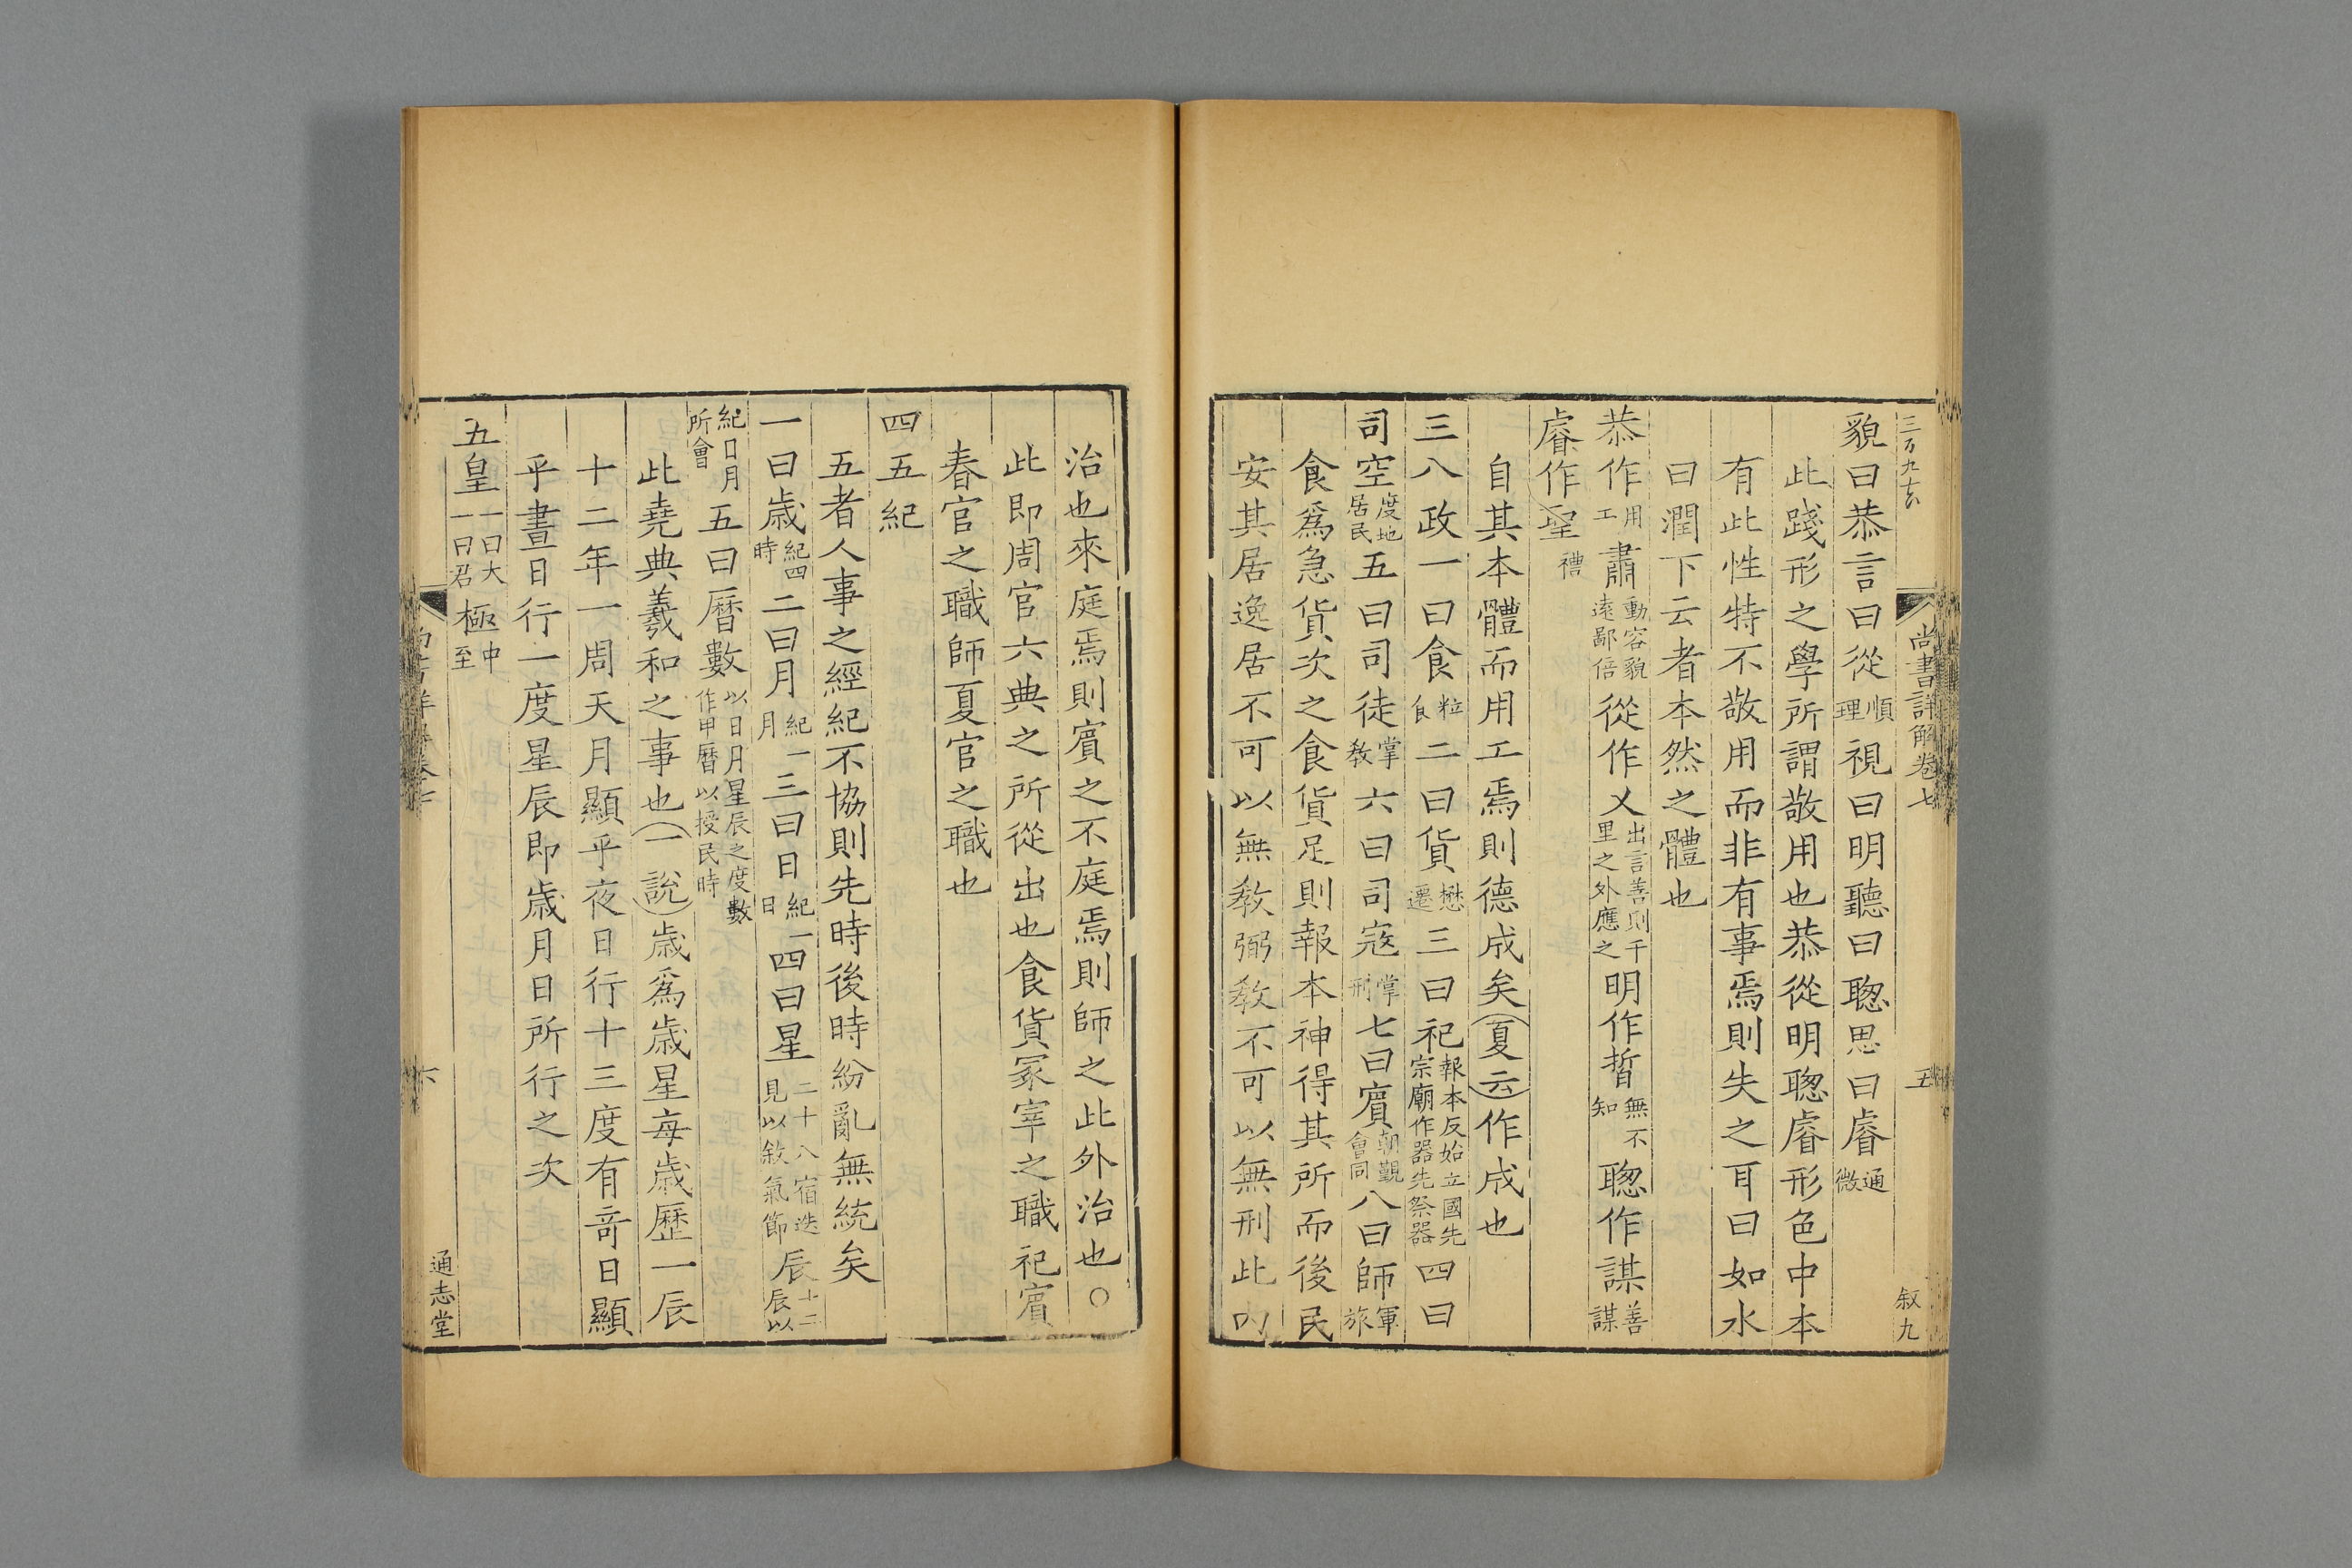 尚書詳解卷七
五
叙九
貌曰恭言曰從順理視曰明聽曰聰思曰睿通微
此踐形之學所謂敬用也恭從明聰睿形色中本
有此性特不敬用而非有事焉則失之耳曰如水
曰潤下云者本然之體也
恭作用工肅動容貌遠鄙倍從作乂出言善則千里之外應之明作晢無不知聰作謀善謀
睿作聖
自其本體而用工焉則德成矣夏云作成也
三八政一曰食粒食二曰貨懋遷三曰祀報本反始立國先宗廟作器先祭器四曰
司空度地居民五曰司徒掌教六曰司寇掌刑七曰賓朝覲會同八曰師軍旅
食爲急貨次之食貨足則報本神得其所而後民
安其居逸居不可以無教弼教不可以無刑此內
治也來庭焉則賓之不庭焉則師之此外治也○
此即周官六典之所從出也食貨冢宰之職祀賓
春官之職師夏官之職也
四五紀
五者人事之經紀不協則先時後時紛亂無統矣
一曰歲紀四時二曰月紀一月三曰日紀一日四曰星二十八宿迭見以敘氣節辰十二辰以
紀日月所會五曰曆數以日月星辰之度數作甲曆以授民時
此堯典羲和之事也一說歲爲歲星每歲歷一辰
十二年一周天月顯乎夜日行十三度有奇日顯
乎晝日行一度星辰即歲月日所行之次
五皇一曰大一曰君極中至
六
通志堂